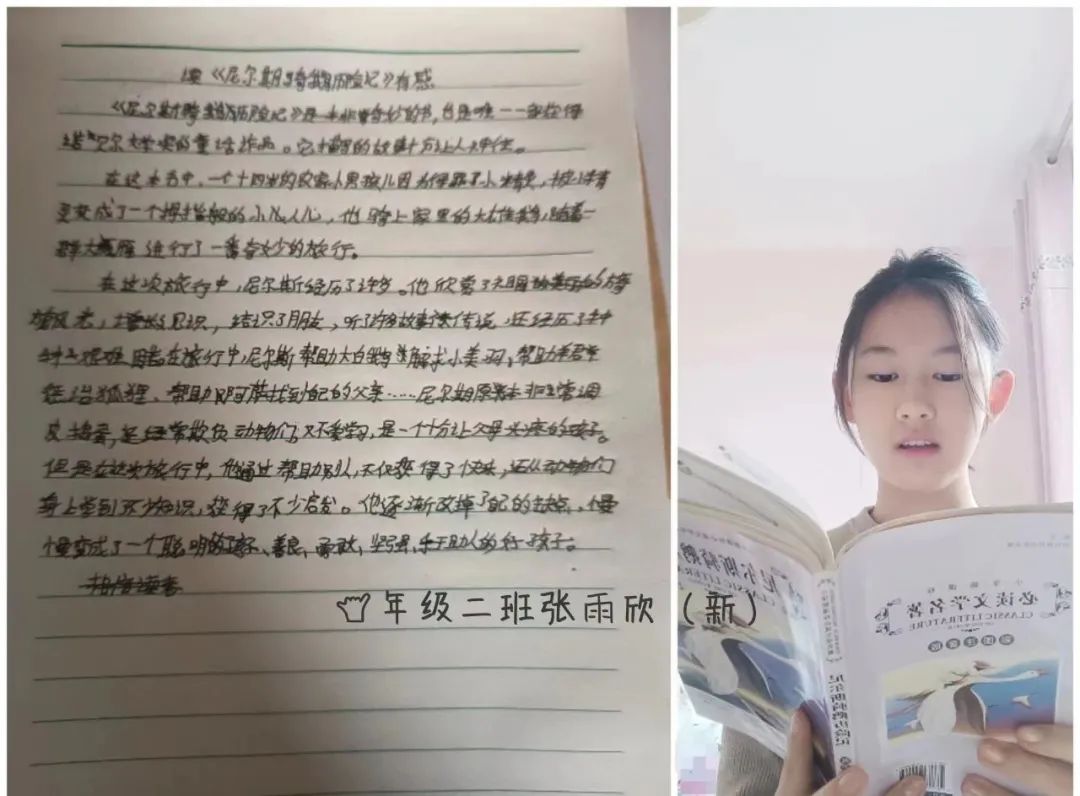 读《尼尔斯骑鹅历险记》有感
《尼尔斯骑鹅历险记》是一本非常奇妙的书,也是唯一一部获得
诺贝尔文学奖的童话作品。它丰富的故事十分让人难忘。
在这本书中,一个十四岁的农家小男孩儿因为得罪了小精灵,被小精
灵变成了一个拇指般的小人儿,他骑上家里的大雄鹅,随着一
群大雁进行了一番奇妙的旅行。
在这次旅行中,尼尔斯经历了许多。他欣赏了
风光,增长了见识,结识了朋友,听了许多故事传说,还经历了种
种艰难 在旅行中,尼尔斯帮助大白鹅 小美羽,帮助
狐狸、帮助阿萨找到自己的父亲……尼尔斯原本非常调
皮捣蛋,经常欺负动物们,又不爱学习,是一个十分让父母头疼的孩子。
但是在这次旅行中,他通过帮助别人,不仅获得了快乐,还从动物们
身上学到不少知识,获得了不少启发。他逐渐改掉了自己的缺点,慢
慢变成了一个聪明、善良、勇敢、坚强、乐于助人的好孩子。
年级二班张雨欣(新)
尼尔斯骑鹅
CLASSIC LITERATURE
小学新课标
必读文学名著
CLASSIC LITERATURE
尼尔斯骑鹅历险记